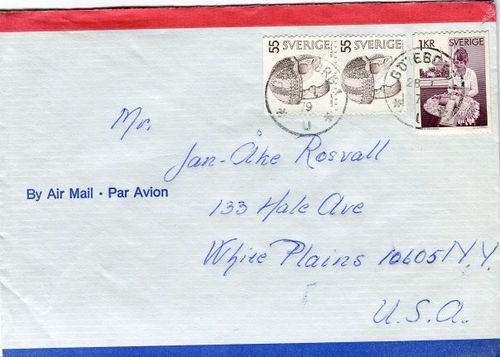 55 SVERIGE 55 SVERIGE 1KR SVERIGE
Mr.
Jan-Åke Rosvall
By Air Mail · Par Avion
133 Hale Ave
White Plains 10605 N.Y.
U.S.A.